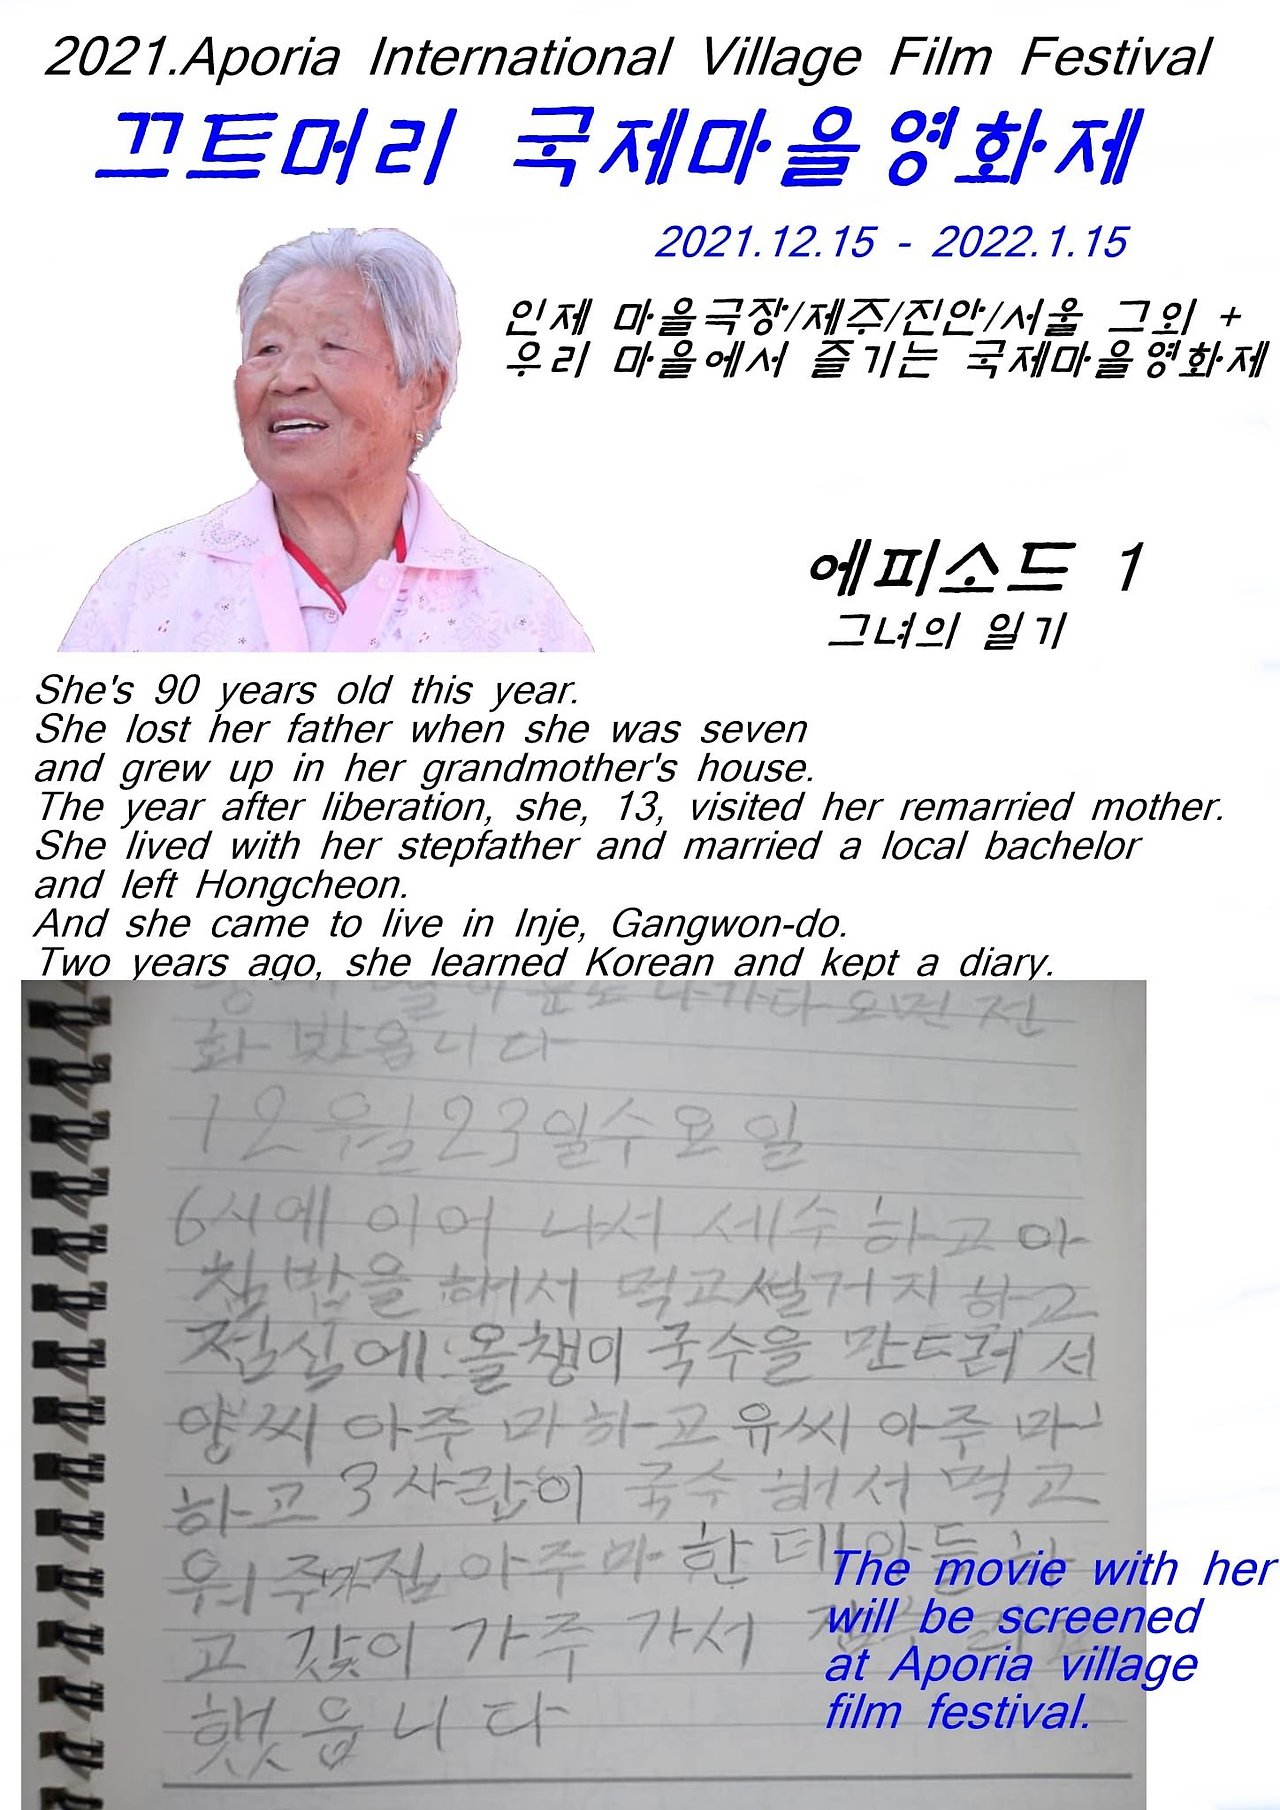 2021.Aporia International Village Film Festival
끄트머리 국제마을영화제
2021.12.15 - 2022.1.15
인제 마을극장/제주/진안/서울 그외 +
우리 마을에서 즐기는 국제마을영화제
에피소드 1
그녀의 일기
She's 90 years old this year.
She lost her father when she was seven
and grew up in her grandmother's house.
The year after liberation, she, 13, visited her remarried mother.
She lived with her stepfather and married a local bachelor
and left Hongcheon.
And she came to live in Inje, Gangwon-do.
Two years ago, she learned Korean and kept a diary.
나가다 오면 전
화 밨읍니다
12월 23일 수요일
6시에 이어 나서 세수 하고 아
침 밥을 해서 먹고 썰거지 하고
점심에 올챙이 국수을 만드러 서
양씨 아주 마 하고 유씨 아주 마
하고 3사람이 국수 해서 먹고
아주 마 한 테
고 갗이 가주 가서
했읍니다
The movie with her
will be screened
at Aporia village
film festival.